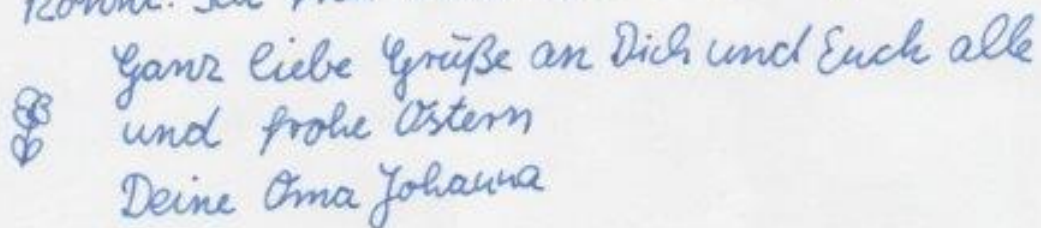 Ganz liebe Grüße an Dich und Euch alle
und frohe Ostern
Deine Oma Johanna